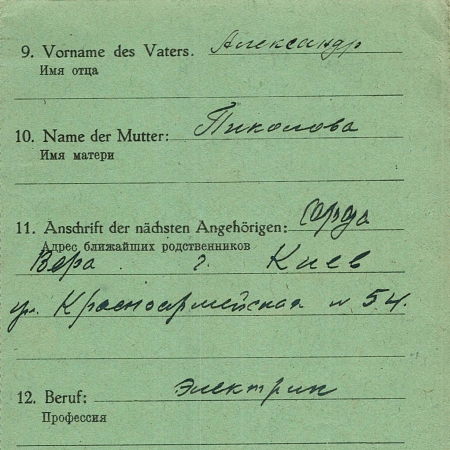 9. Vorname des Vaters. Александр
Имя отца
10. Name der Mutter: Пиколова
Имя матери
11. Anschrift der nächsten Angehörigen: Сорда
Адрес ближайших родственников
Вера г. Киев
ул. Красноармейская № 54.
12. Beruf: Электрик
Профессия